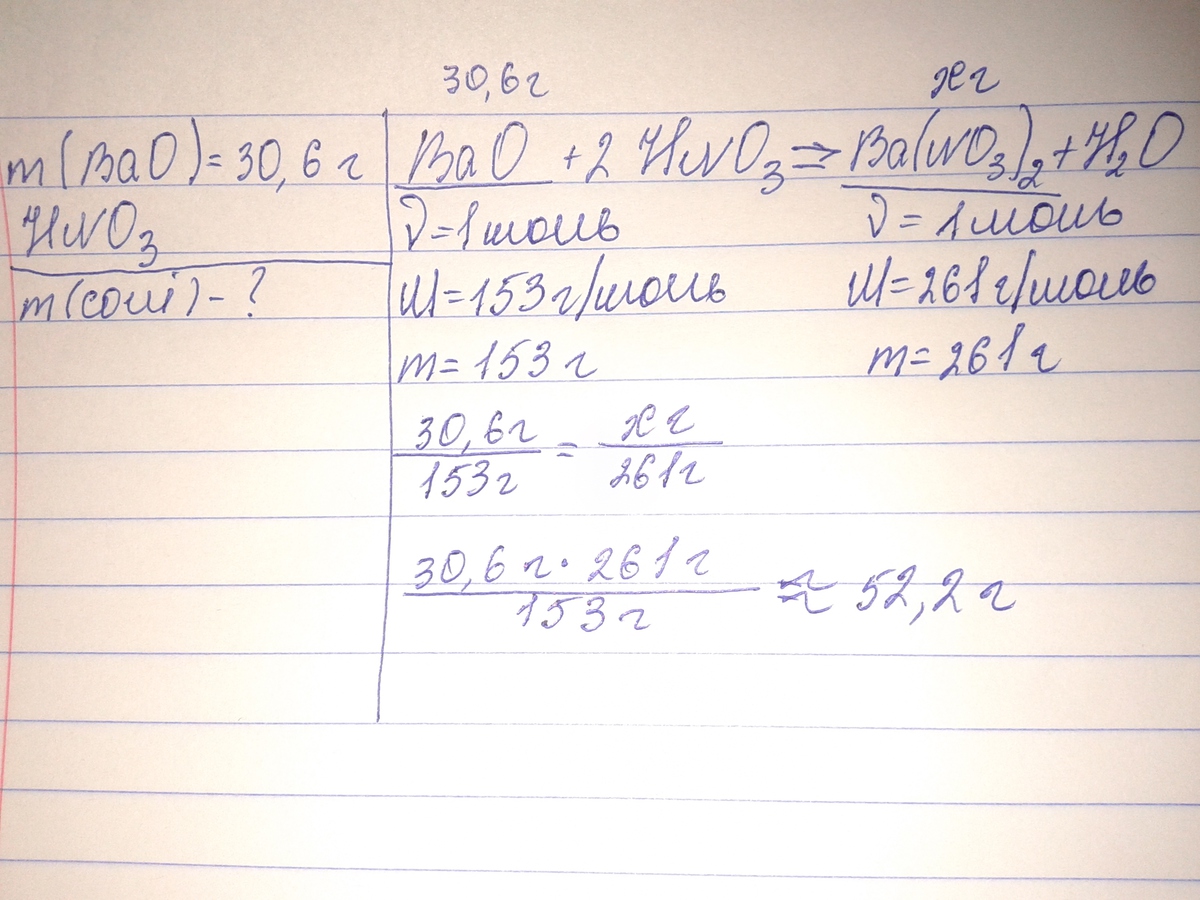 30,6 г хг
m(BaO) = 30,6 г
HNO₃
m(солі) - ?
BaO + 2 HNO₃ ⇒ Ba(NO₃)₂ + H₂O
ν = 1 моль ν = 1 моль
M = 153 г/моль M = 261 г/моль
m = 153 г m = 261 г
30,6 г / 153 г = х г / 261 г
30,6 г · 261 г / 153 г ≈ 52,2 г